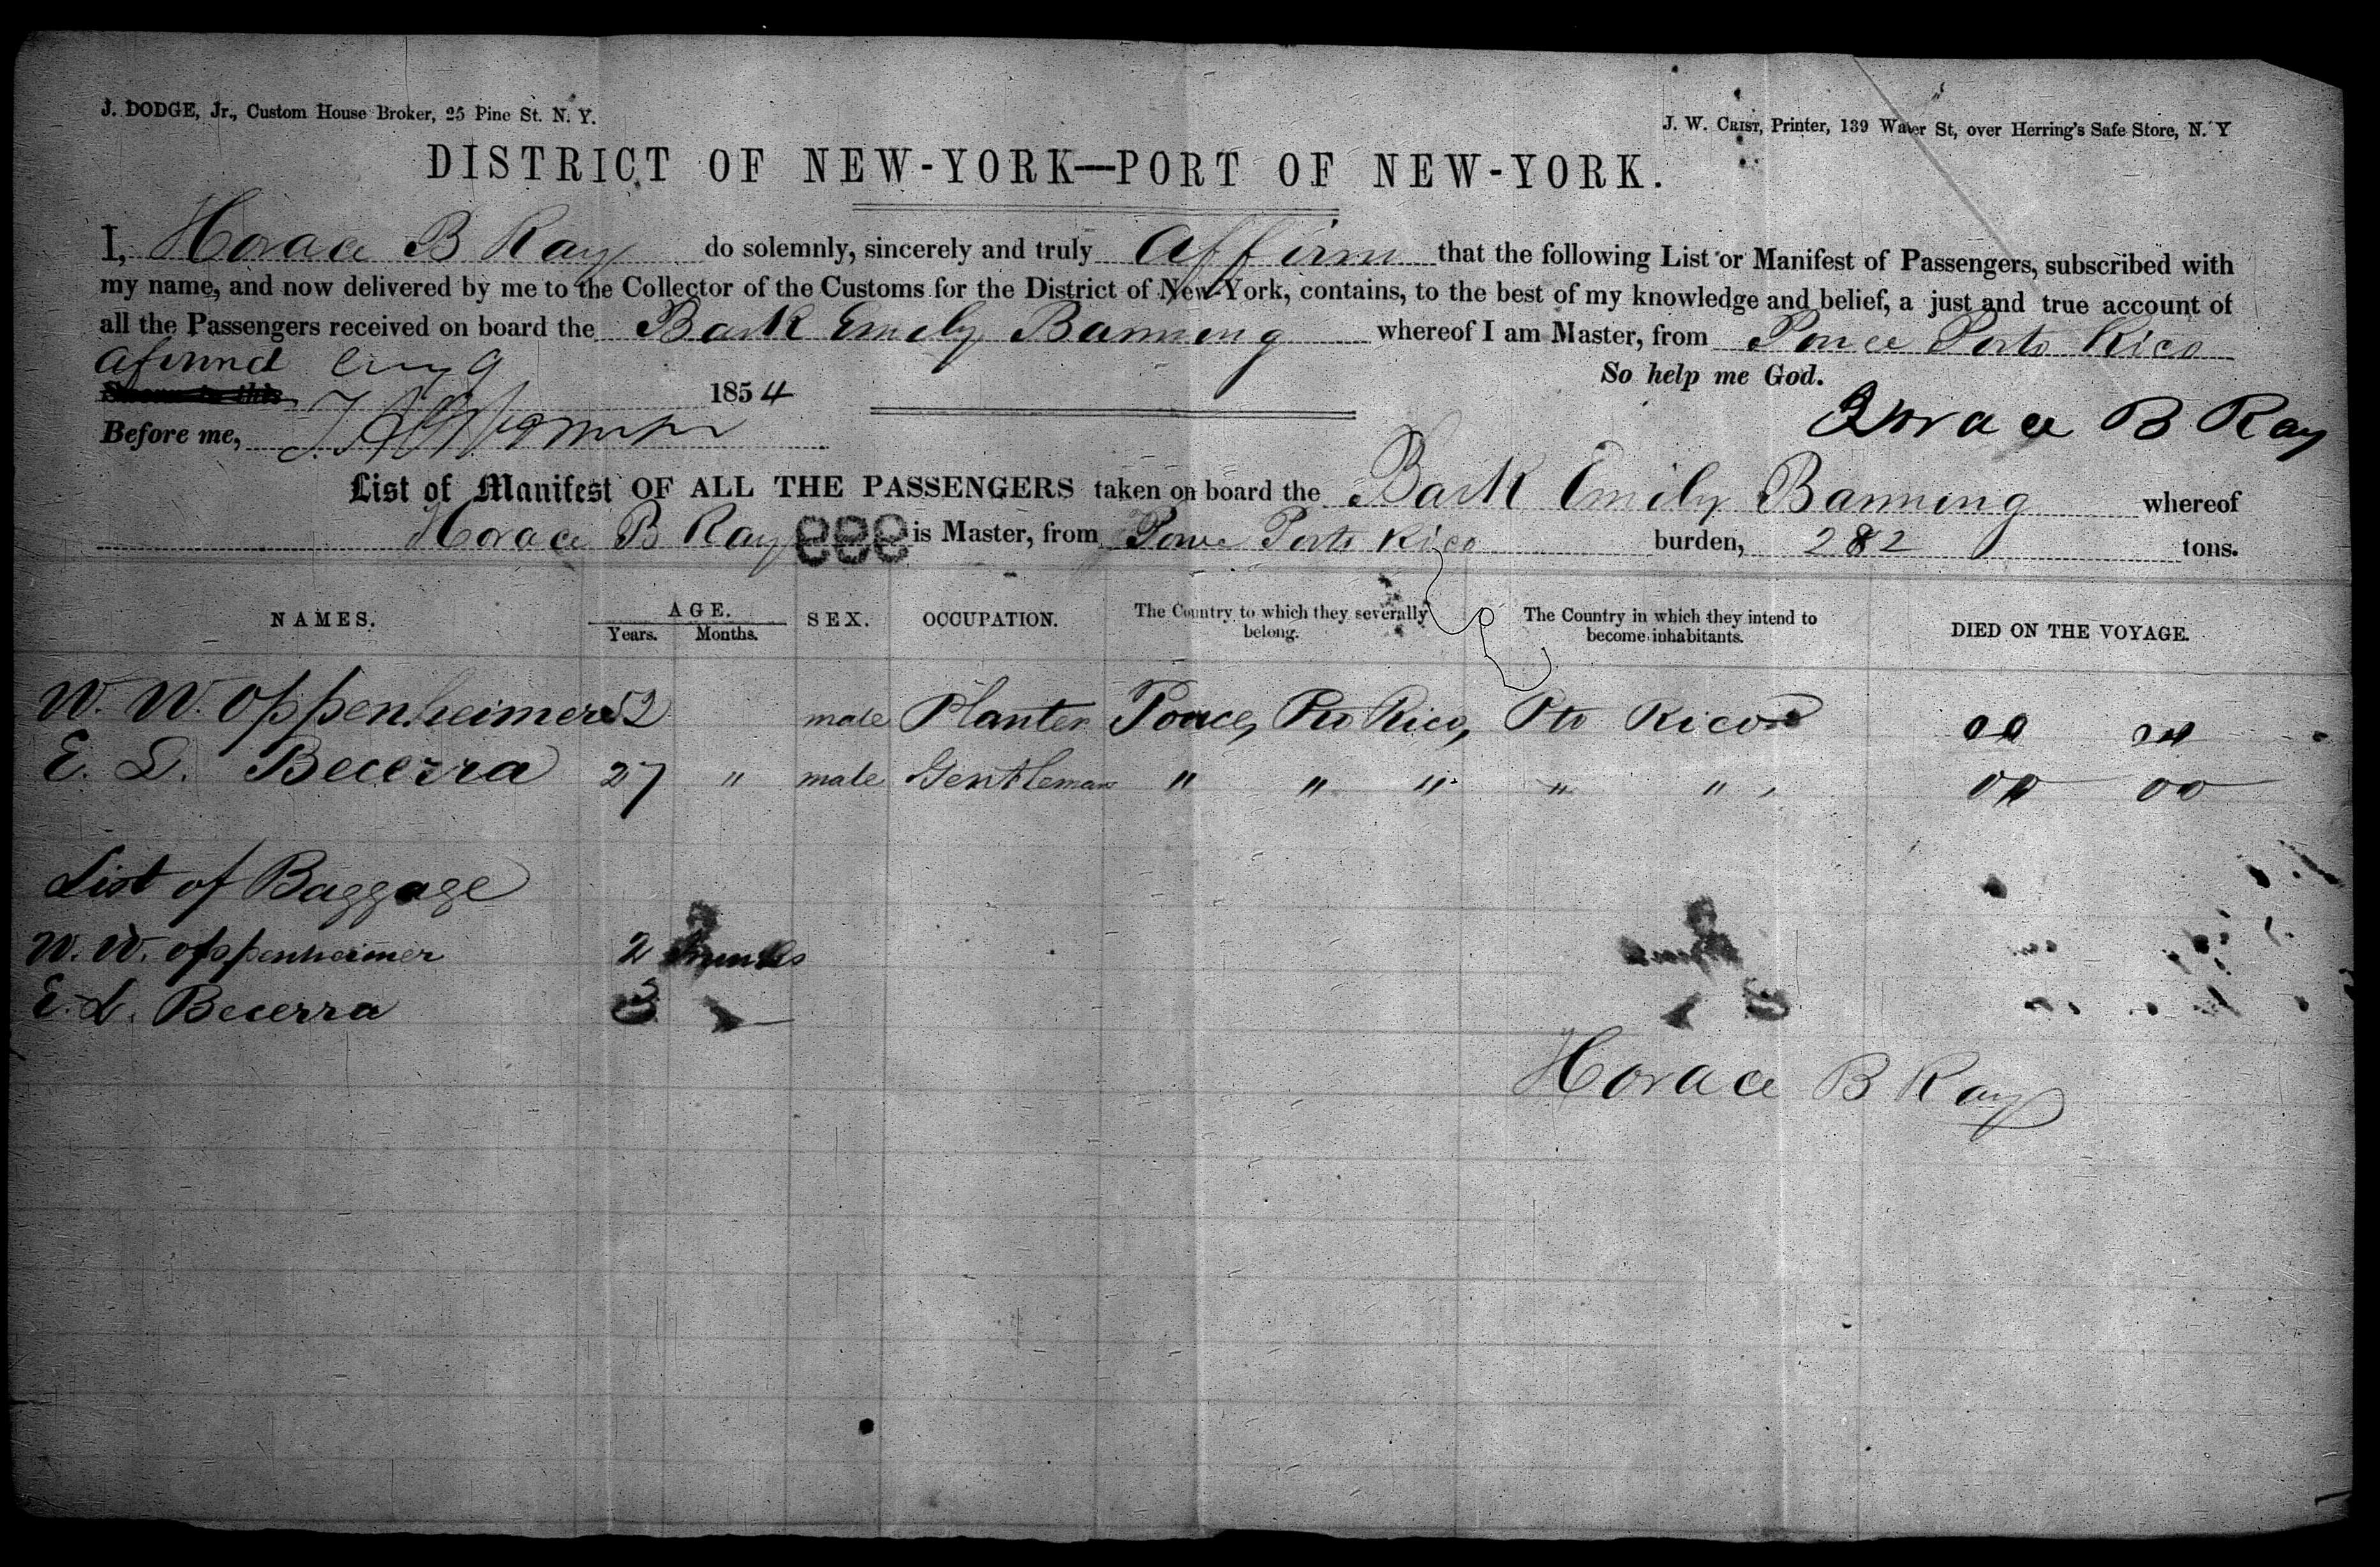 J. DODGE, Jr., Custom House Broker, 25 Pine St. N. Y.
J. W. CRIST, Printer, 139 Water St, over Herring's Safe Store, N. Y
DISTRICT OF NEW-YORK—PORT OF NEW-YORK.
I, Horace B Ray do solemnly, sincerely and truly Affirm that the following List or Manifest of Passengers, subscribed with
my name, and now delivered by me to the Collector of the Customs for the District of New-York, contains, to the best of my knowledge and belief, a just and true account of
all the Passengers received on board the Bark Emily Banning whereof I am Master, from Ponce Porto Rico
So help me God.
Afirmd Aug 9
Sworn to this 1854
Horace B Ray
Before me,
List of Manifest OF ALL THE PASSENGERS taken on board the Bark Emily Banning whereof
Horace B Ray 999 is Master, from Ponce Porto Rico burden, 282 tons.
NAMES. AGE. Years. Months. SEX. OCCUPATION. The Country to which they severally belong. The Country in which they intend to become inhabitants. DIED ON THE VOYAGE.
W. W. Oppenheimer 52 male Planter Ponce, Pto Rico, Pto Rico
E. L. Becerra 27 " male Gentleman " " " " " 00 00
List of Baggage
W. W. Oppenheimer 2 trunks
E. L. Becerra 3
Horace B Ray